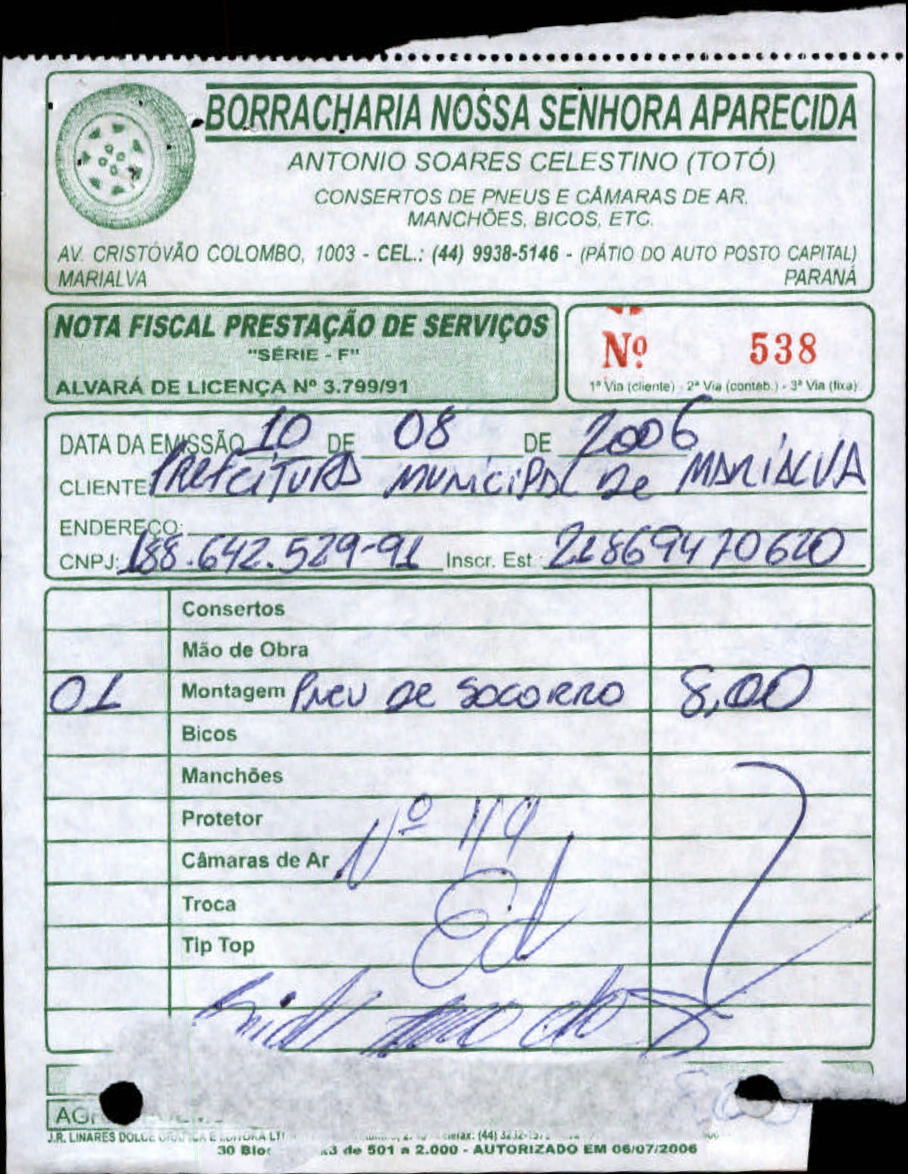 BORRACHARIA NOSSA SENHORA APARECIDA
ANTONIO SOARES CELESTINO (TOTÓ)
CONSERTOS DE PNEUS E CÂMARAS DE AR.
MANCHÕES, BICOS, ETC.
AV. CRISTÓVÃO COLOMBO, 1003 - CEL.: (44) 9938-5146 - (PÁTIO DO AUTO POSTO CAPITAL)
MARIALVA PARANÁ
NOTA FISCAL PRESTAÇÃO DE SERVIÇOS
"SÉRIE - F"
ALVARÁ DE LICENÇA Nº 3.799/91
Nº 538
1ª Via (cliente) - 2ª Via (contab.) - 3ª Via (fixa)
DATA DA EMISSÃO 10 DE 08 DE 2006
CLIENTE PREFEITURA MUNICIPAL DE MARIALVA
ENDEREÇO:
CNPJ: 188.642.529-91 Inscr. Est.: 21869470620
Consertos
Mão de Obra
01 Montagem PNEU DE SOCORRO 8,00
Bicos
Manchões
Protetor
Nº 119
Câmaras de Ar
Troca
Tip Top
J.R. LINARES DOLCE
30 de 501 a 2.000 - AUTORIZADO EM 06/07/2006